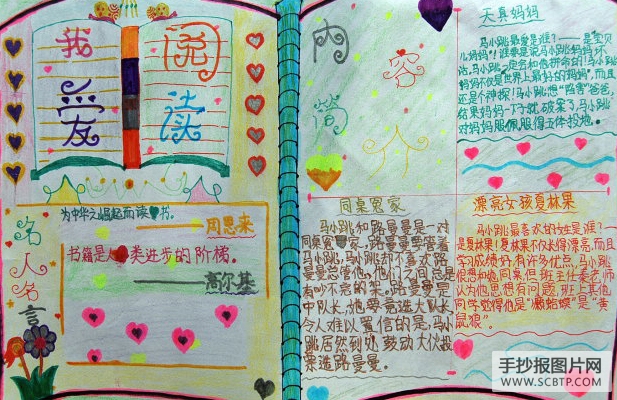 我
爱
阅
读
名
人
名
言
为中华之崛起而读书。
——周恩来
书籍是人类进步的阶梯。
——高尔基
内
容
简
介
同桌冤家
马小跳和路曼曼是一对
同桌冤家,路曼曼要管着
马小跳,马小跳却不喜欢路
曼曼总管他,他们之间总是
有吵不完的架。路曼曼是
中队长,她要竞选大队长
令人难以置信的是,马小
跳居然到处鼓动大伙投
票选路曼曼。
天真妈妈
马小跳最爱是谁?——是宝贝
儿妈妈!谁要是说马小跳妈妈坏
话,马小跳一定会和他拼命的!马小跳
妈妈不仅是世界上最好的妈妈,而且
还是个神探!马小跳想“陷害”爸爸,
结果妈妈一下子就破案了,马小跳
对妈妈服佩服得五体投地。
漂亮女孩夏林果
马小跳最喜欢的女生是谁?——
是夏林果!夏林果不仅长得漂亮,而且
学习成绩好,有许多优点,马小跳
很想和她同桌,但班主任秦老师
认为他思想有问题,班上其他
同学觉得他是“癞蛤蟆”是“黄
鼠狼”。
手抄报图片网
WWW.SCBTP.COM